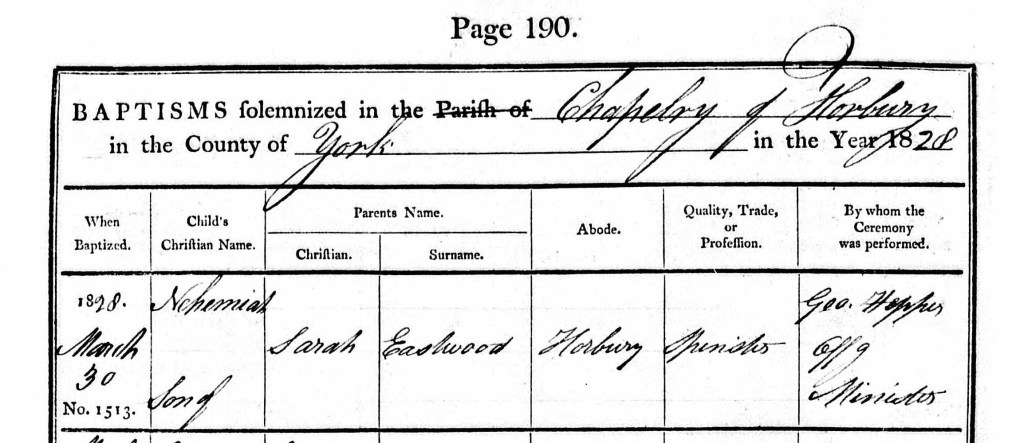 Page 190.
BAPTISMS solemnized in the Parish of Chapelry of Horbury
in the County of York in the Year 1828
When Baptized.
Child's Christian Name.
Parents Name.
Christian.
Surname.
Abode.
Quality, Trade, or Profession.
By whom the Ceremony was performed.
1828.
March
30
No. 1513.
Nehemiah
Son of
Sarah
Eastwood
Horbury
Spinster
Geo. Hopper
Offg
Minister